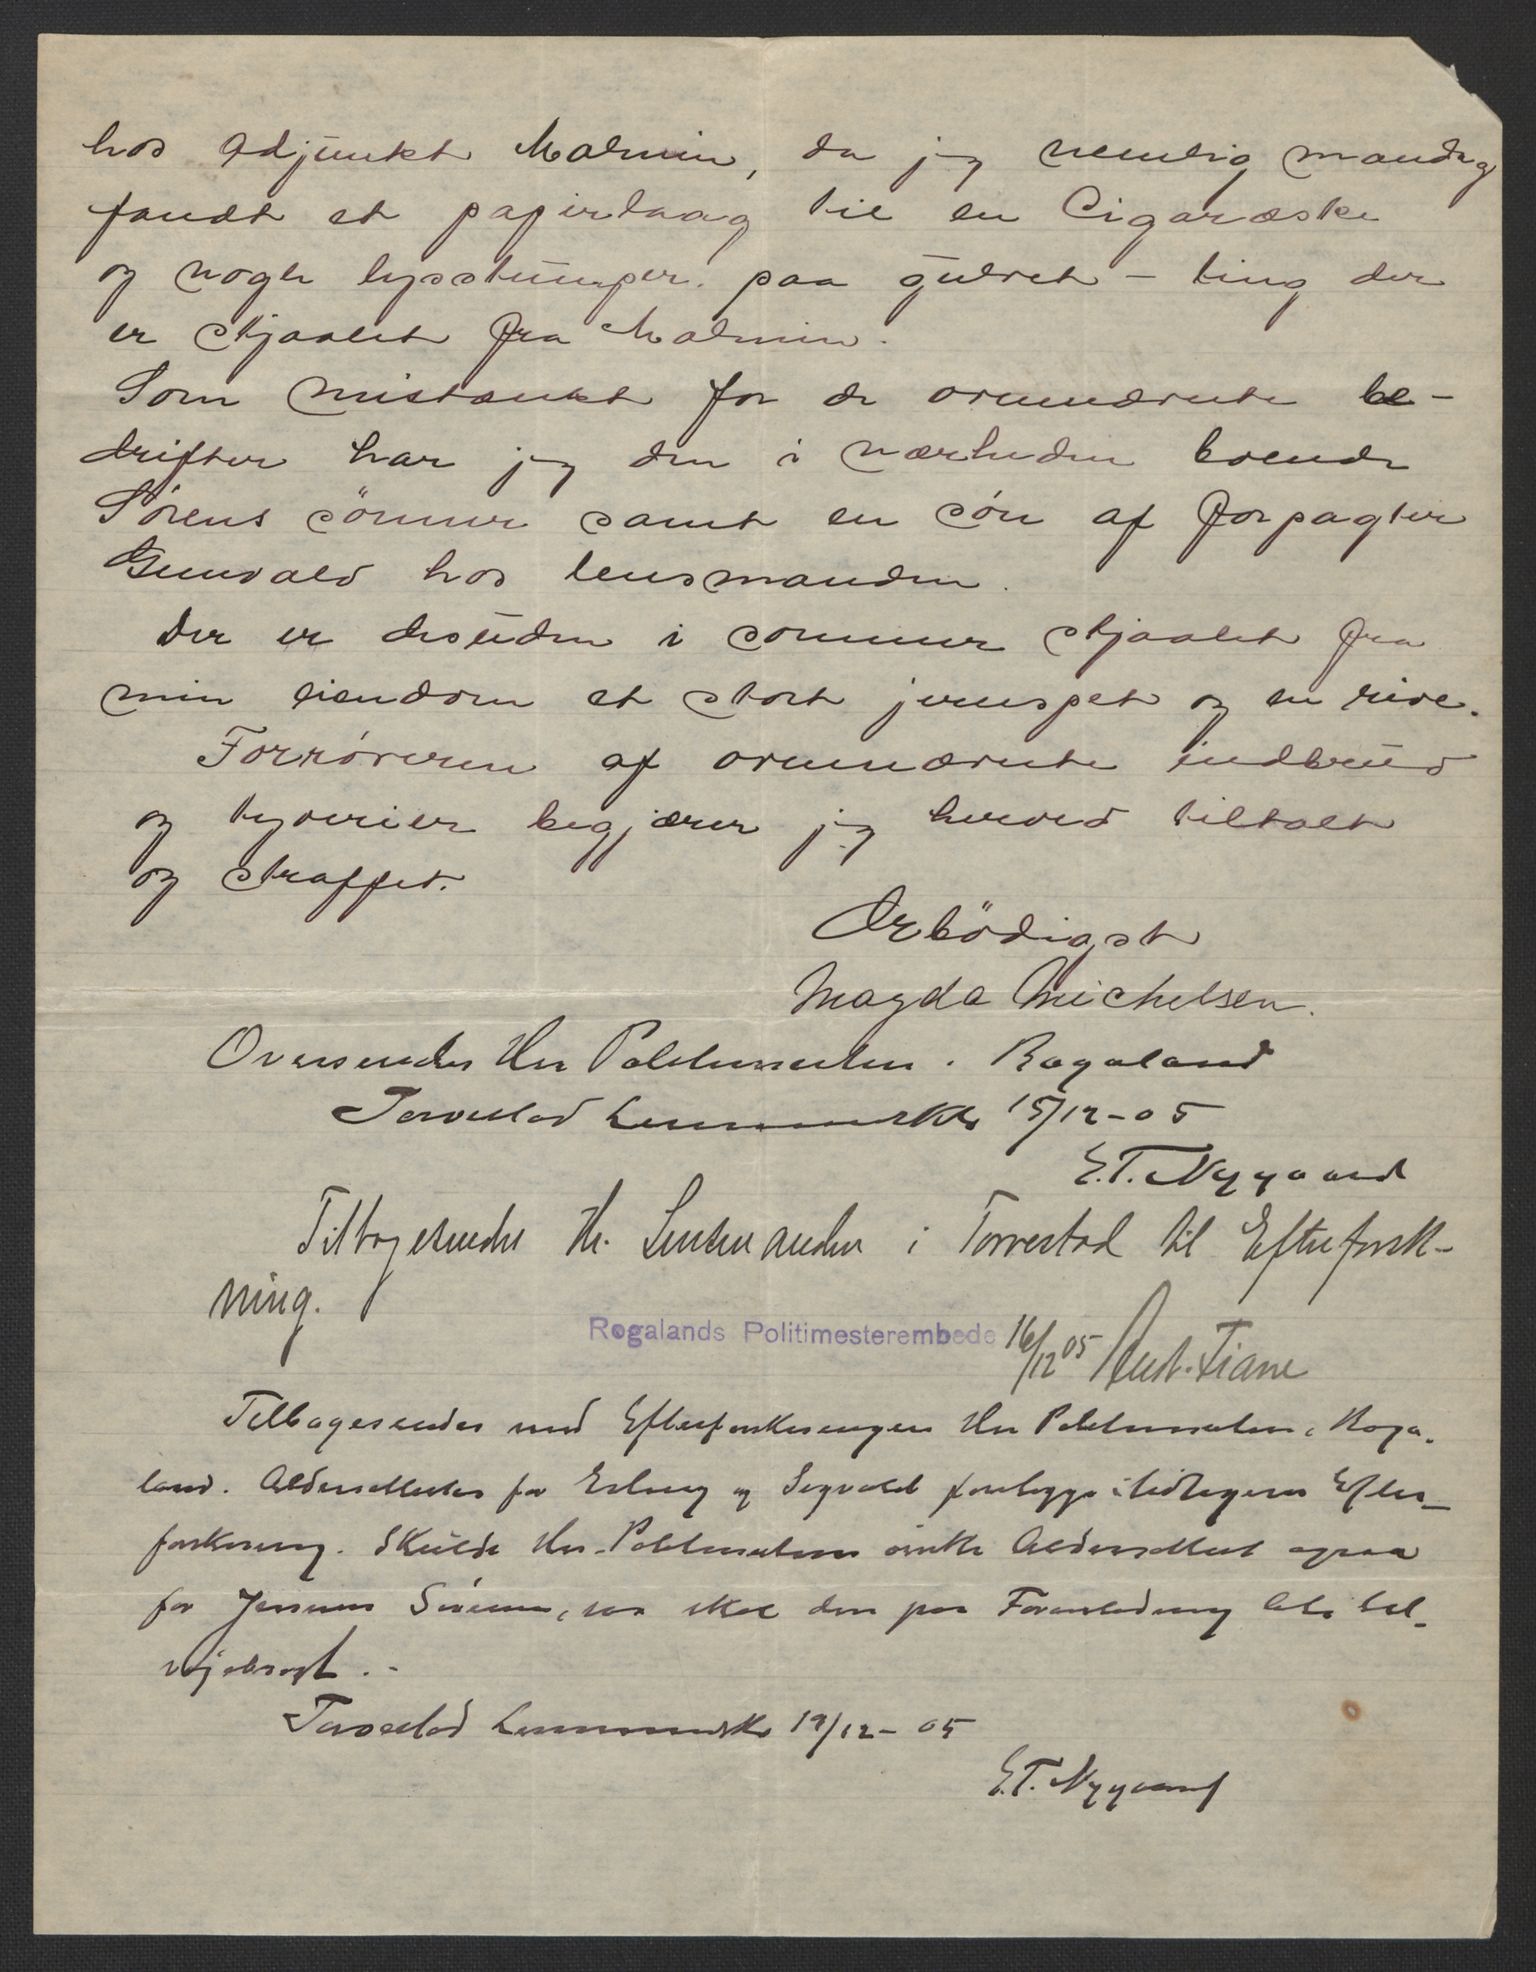 hos Adjunkt Malmin, da jeg nemlig mandag
fandt et papirlaag til en Cigaræske
og nogle lysstumper paa gulvet - ting der
er stjaalet fra Malmin.
Som mistænkt for de ovennævnte be-
drifter har jeg den i nærheden boende
Sørens sönner samt en søn af forpagter
Gunvald hos lensmanden.
Der er desuden i sommer stjaalet fra
min eiendom et stort jernspet og en rive.
Forröveren af ovennævnte indbrud
og tyverier begjærer jeg herved tiltalt
og straffet.
Ærbödigst
Magda Michelsen.
Oversendes Hr Politimesteren i Rogaland
Torvestad Lensmandsk 15/12-05
E.T. Nygaard
Tilbagesendes Hr. Lensmanden i Torvestad til Efterforsk-
ning.
Rogalands Politimesterembede 16/12 05 Aust. Tiane
Tilbagesendes med Efterforskningen Hr Politimesteren i Roga-
land. Aldersattester for Erling og Sigvald i tidligere Efter-
forskning. Skulde Hr. Politimesteren ønske Aldersattest ogsaa
for Sørensen, saa skal den paa Foranledning blive til-
vejebragt. -
Torvestad Lensmandsk 19/12-05
E.T. Nygaard